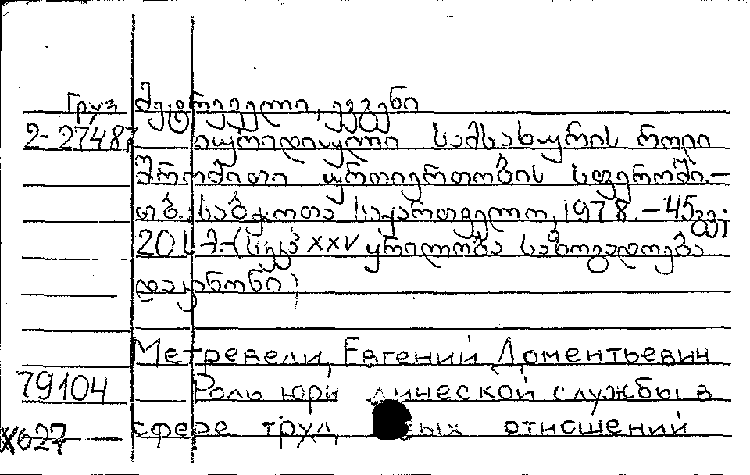 Груз მეტრეველი, ევგენი
2-27487 იურიდიული სამსახურის როლი
შრომითი ურთიერთობის სფეროში.—
თბ. საბჭოთა საქართველო, 1978.—45გვ;
20სმ.—(სკკპ XXV ყრილობა საზოგადოება
და კანონი)
Метревели, Евгений Доментьевич
79104 Роль юридической службы в
X627 сфере труд вых отношений